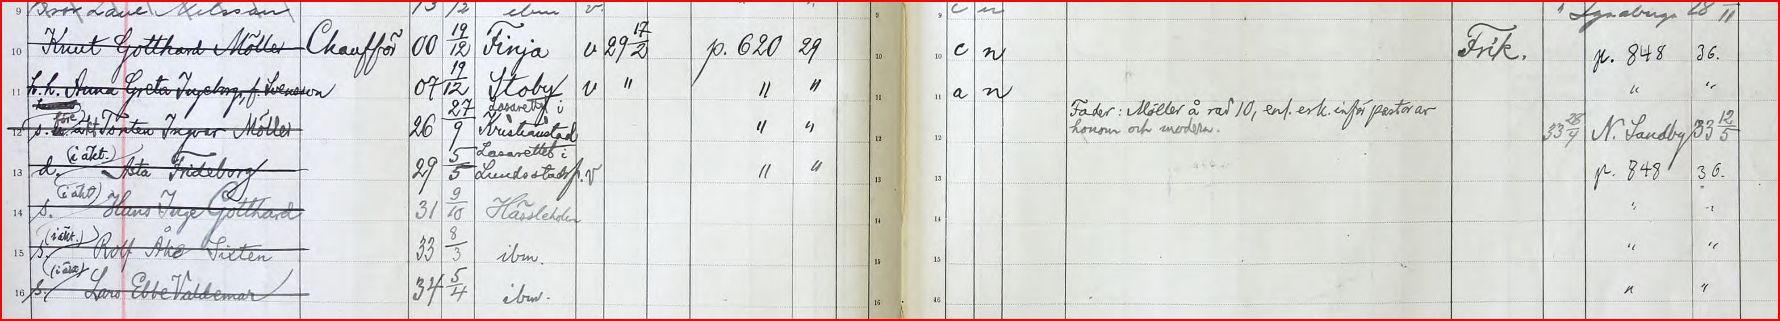 9 Nilsson 13 12 ibm v. " " 9 c n " Lynaberga 28 11
10 Knut Gotthard Möller Chaufför 00 19/12 Finja v 29 17/2 p. 620 29 10 c n Frik. p. 848 36.
11 h. h. Anna Greta Ingeborg, f. Svensson 07 19/12 Stoby v " " " 11 a n " "
12 s. före äkt Torsten Ingvar Möller 26 27/9 Lasarettet i Kristianstad " " 12 Fader: Möller å rad 10, enl. erk. inför pastor av honom och modern. 33 28/4 N. Sandby 33 12/5
13 d. (i äkt.) Asta Frideborg 29 5/5 Lasarettet i Lunds stadsf. v " " 13 p. 848 36.
14 s. (i äkt) Hans Inge Gotthard 31 9/10 Hässleholm 14 " "
15 s. (i äkt.) Rolf Åke Sixten 33 8/3 ibm. 15 " "
16 s. (i äkt) Lars Ebbe Valdemar 34 5/4 ibm. 16 " "